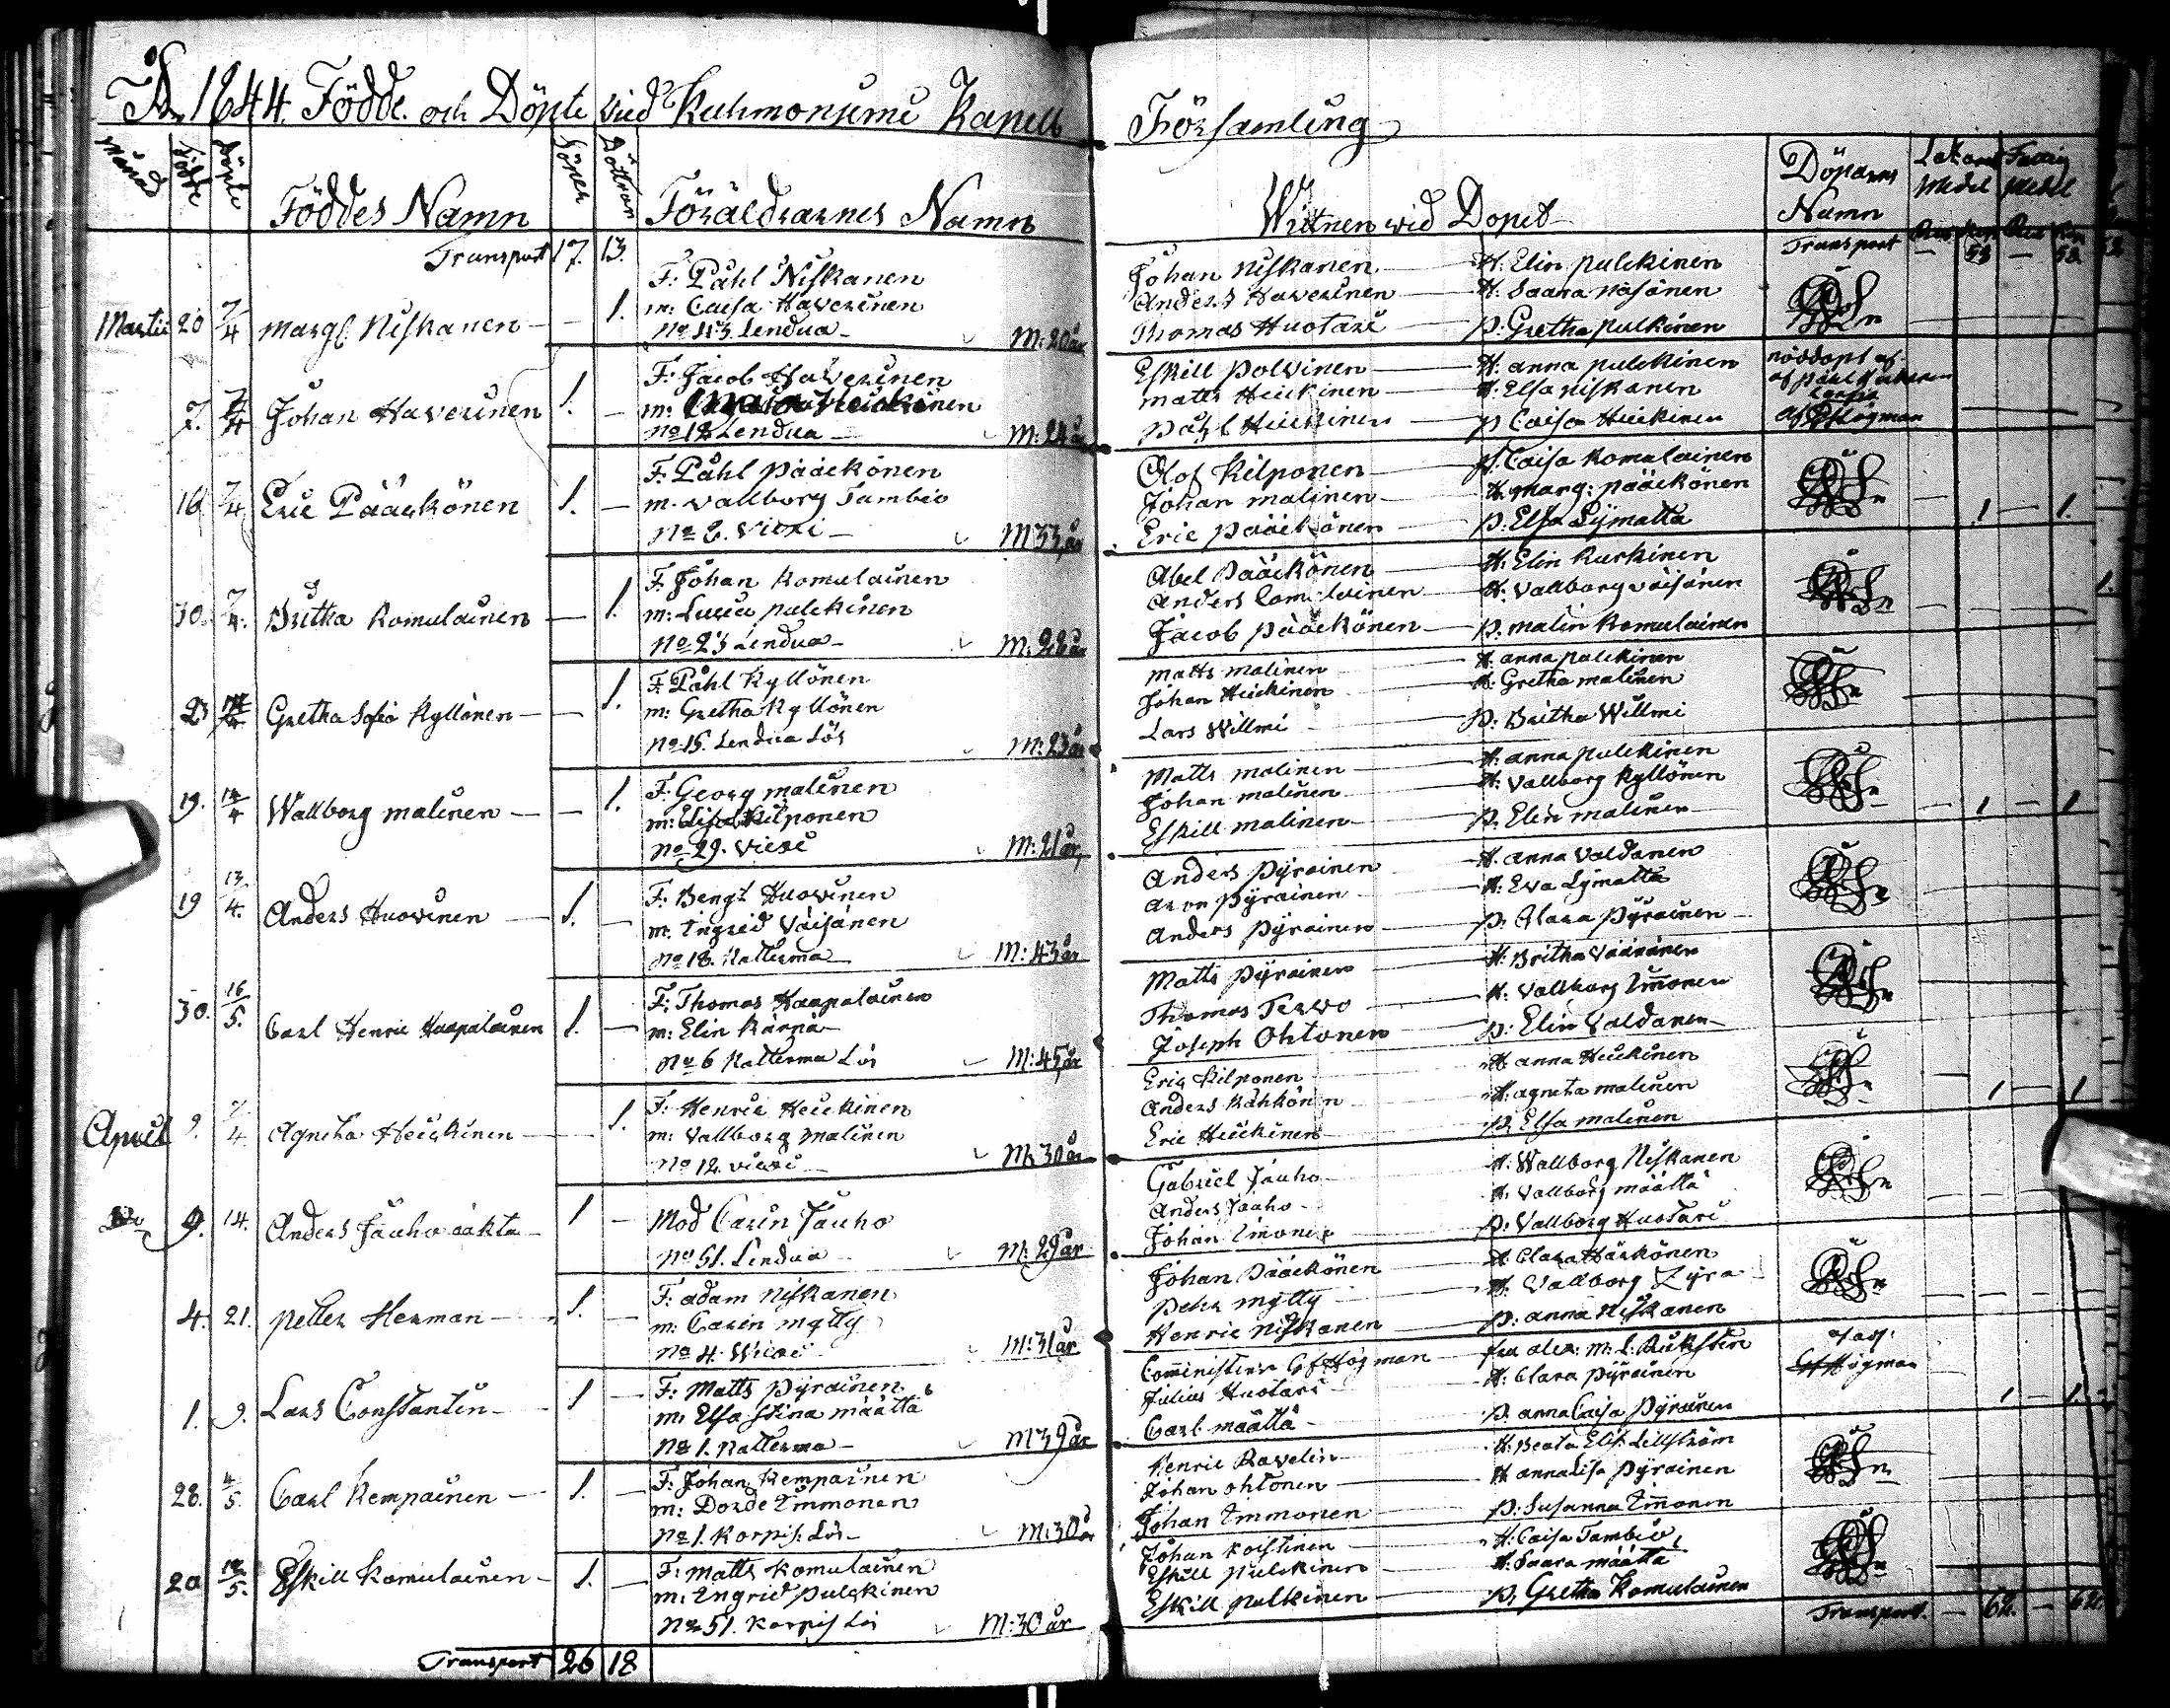 1844. Födde och Döpte vid Kuhmoniemi Kapell Församling
Månad Födde Döpte Föddes Namn Söner Döttrar Föräldrarnes Namn Wittnen wid Dopet Döparens Namn
Transport 17. 13. Transport 53 53
F: Påhl Niskanen Johan Niskanen H: Elin pulckinen
m: Caisa Haverinen Anders Haverinen H: Saara
Martii 20 7/4 Margl. Niskanen 1. No 43. Lendua M: 20 år Thomas Huotari p: Gretha pulkinen
F: Jacob Haverinen Eskill Polvinen H: anna pulckinen nöddopt af
7. 7/4 Johan Haverinen 1. m: Heickinen matts Heickinen H: Elsa Niskanen af påhl
No 18 Lendua M: 24 år påhl Heickinen p Caisa Heickinen af Högman
F: Påhl pääckönen Olof Kilponen H. Caisa Komulainen
16 7/4 Eric Pääckönen 1. m. Vallborg Tambio Johan malinen H. marg: pääckönen
No 2. Viexi M 33 år Eric pääckönen p: Elsa Lÿmatta 1 1.
F. Johan Komulainen Abel Pääckönen H: Elin Kurkinen
30. 7/4. Britha Komulainen 1. m: Lucia pulckinen Anders Komulainen H: Vallborg väisänen
No 23 Lendua M: 28 år Jacob pääckönen p: malin Komulainen
F. Påhl Kyllönen matts malinen H. anna pulckinen
23 Gretha Sofia Kyllönen 1. m: Gretha Kyllönen Johan Heickinen H: Gretha malinen
No 15. Lendua Lös M: 23 år Lars Willmi p: Britha Willmi
F: Georg malinen Matts malinen H: anna pulckinen
19. 12/4 Wallborg malinen 1. m: Kilponen Johan malinen H: Vallborg Kyllönen
No 29. Viexi M: 21 år, Eskill malinen p. Elin malinen 1 1
F: Bengt Huovinen Anders pÿrainen H. anna Valdanen
19 13/4. Anders Huovinen 1. m. Ingrid Väisänen aron pÿrainen H: Eva Lÿmatta
No 18. Katterma M: 43 år Anders pÿrainen p. Clara pÿrainen
F: Thomas Haapalainen Matts pÿrainen H: Britha Väänänen
30. 16/5. Carl Henric Haapalainen 1. m: Elin Kärnä Thomas Tervo H. Vallborg Immonen
No 6 Katterma Lös M: 45 år Joseph Ohtonen p: Elin Valdanen
F: Henric Heickinen Eric Kilponen H anna Heickinen
April 9. 7/4. Agneta Heickinen 1. m: Vallborg malinen Anders Kähkönen H: agneta malinen
No 12. viexi M: 30 år Eric Heickinen p, Elsa malinen 1 1
Mod Carin Jauho Gabriel Jauho H: Wallborg Niskanen
9. 14. Anders Jauho oäkta 1 Anders Jauho H. Vallborg määttä
No 51. Lendua M: 29 år Johan Imonen p: Vallborg Huotari
F: adam Niskanen Johan Pääckönen H Clara Härkönen
4. 21. petter Herman 1. m: Carin mytty petter mytty H. Vallborg Zÿra
No 4. Viexi M: 31 år Henric Niskanen p: anna Niskanen
F: Matts pÿrainen Comministern G f Högman fru alex: m: L:
1. 9. Lars Constantin 1 m. Elsa Stina määttä Julius Huotari H: Clara pÿrainen Högman
No 1. Katterma M 39 år Carl määttä p. anna Caisa pÿrainen 1 1
F: Johan Kempainen Henric Ravelin H: Beata Elis: Lillström
28. 4/5. Carl Kempainen 1. m: Dorde Immonen Johan ohtonen H annaLisa pÿrainen
No 1. Korpis: Lös M: 30 år Johan Immonen p: Susanna Immonen
F: Matts Komulainen Johan Koistinen H: Caisa Tambio
20 12/5. Eskill Komulainen 1. m. Ingrid pulckinen Eskill pulckinen H: Saara määttä
No 51. Korpis Lös M: 30 år Eskill pulkinen p, Gretha Komulainen
Transport 26 18 Transport. 62. 62.